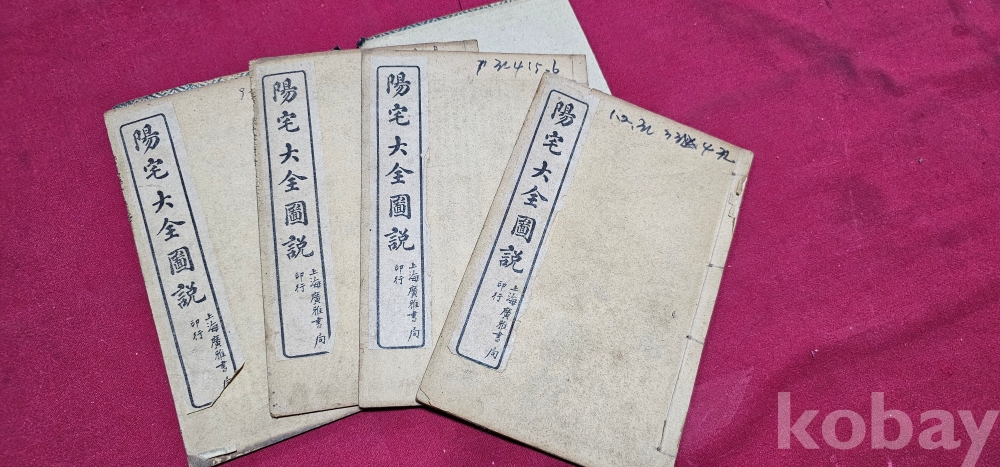 陽宅大全圖說
上海廣雅書局
印行
陽宅大全圖說
上海廣雅書局
印行
陽宅大全圖說
上海廣雅書局
印行
陽宅大全圖說
上海廣雅書局
印行
kobay